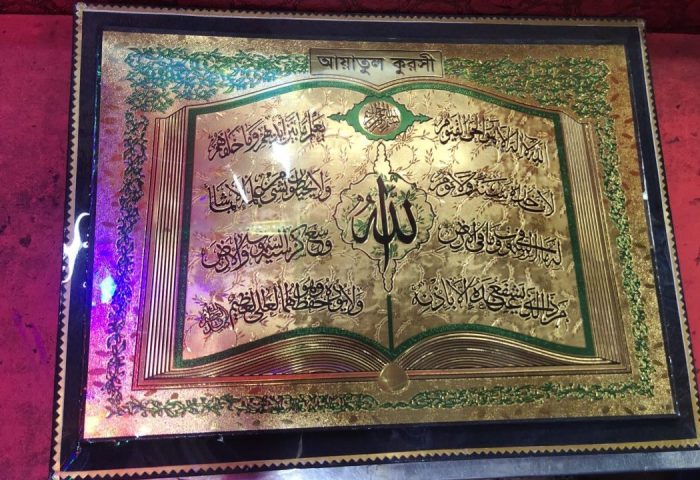 আয়াতুল কুরসী
الله لا إله إلا هو الحي القيوم
لا تأخذه سنة ولا نوم
له ما في السموات وما في الأرض
من ذا الذي يشفع عنده إلا بإذنه
الله
يعلم ما بين أيديهم وما خلفهم
ولا يحيطون بشيء من علمه إلا بما شاء
وسع كرسيه السموات والأرض
ولا يؤده حفظهما وهو العلي العظيم